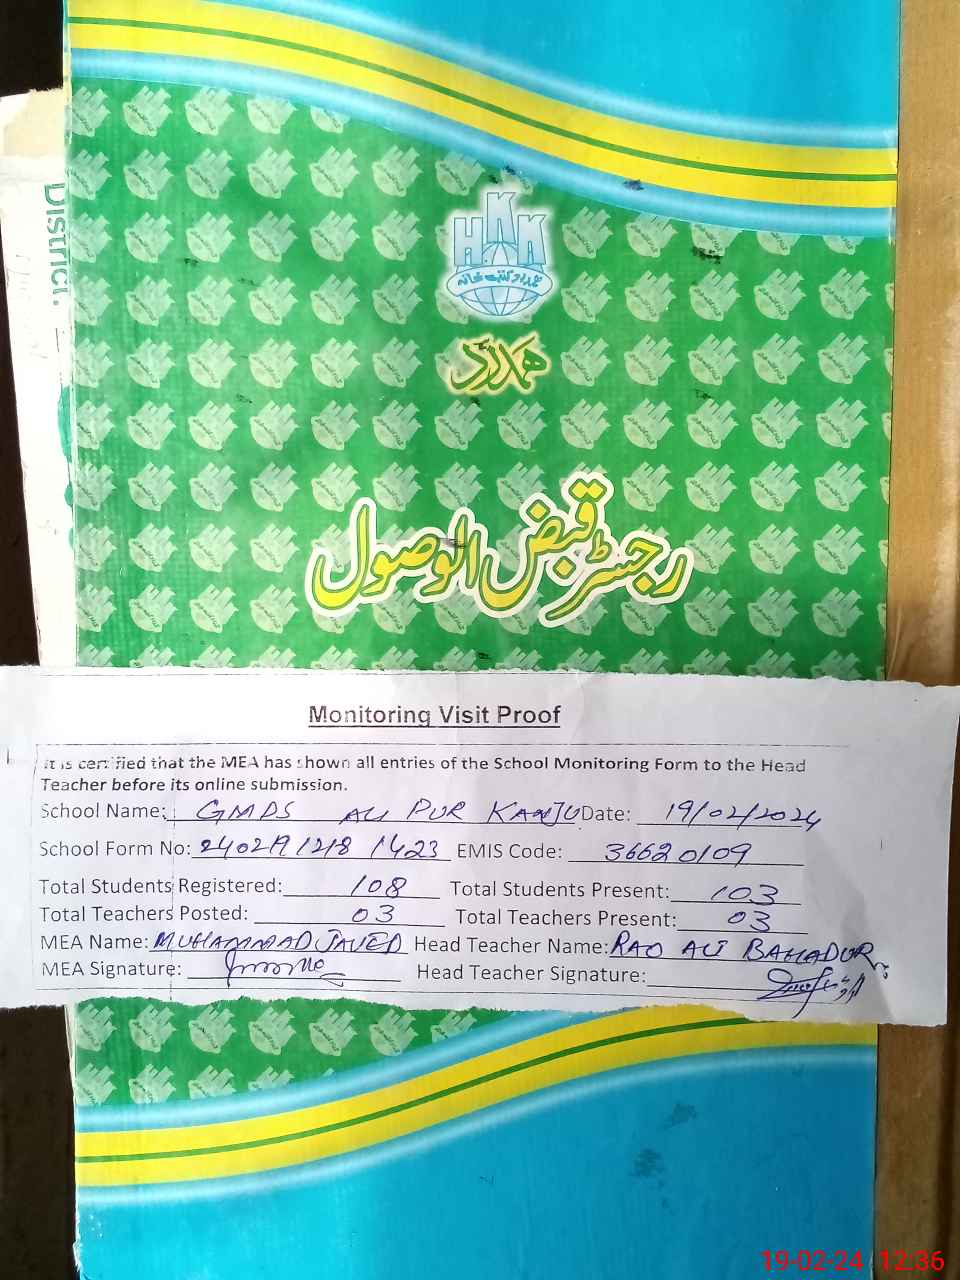 District.
HKK
ہمدرد کتب خانہ
ہمدرد
رجسٹر قبض الوصول
Monitoring Visit Proof
It is certified that the MEA has shown all entries of the School Monitoring Form to the Head
Teacher before its online submission.
School Name: GMPS ALI PUR KANJU Date: 19/02/2024
School Form No: 2402A1218 1423 EMIS Code: 36620109
Total Students Registered: 108 Total Students Present: 103
Total Teachers Posted: 03 Total Teachers Present: 03
MEA Name: MUHAMMAD JAVED Head Teacher Name: RAO ALI BAHADUR
MEA Signature: Head Teacher Signature:
19-02-24 12:36